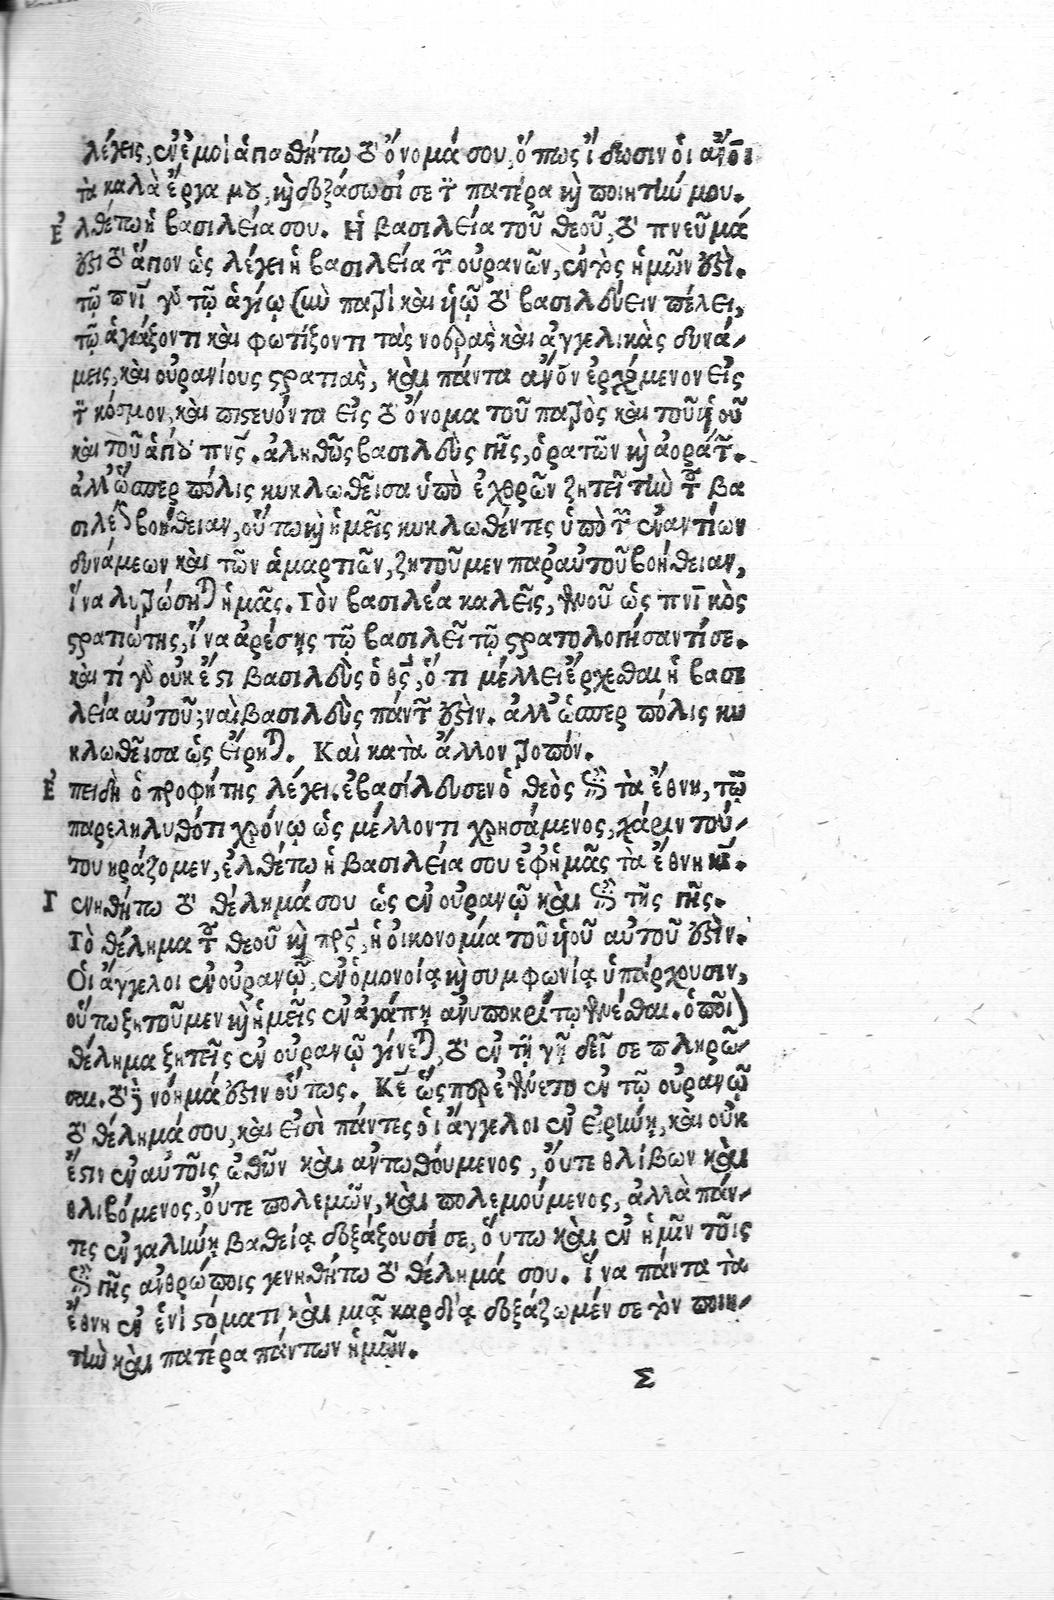 λέγεις, ἐν ἐμοὶ ἁγιασθήτω τὸ ὄνομά σου, ὅπως ἴδωσιν οἱ ἄνοι
τὰ καλὰ ἔργα μου, καὶ δοξάσωσί σε τὸν πατέρα καὶ ποιητήν μου.
Ἐλθέτω ἡ βασιλεία σου. Ἡ βασιλεία τοῦ θεοῦ, τὸ πνεῦμά
ἐστι τὸ ἅγιον ὡς λέγει ἡ βασιλεία τῶν οὐρανῶν, ἐντὸς ἡμῶν ἐστὶ.
τῷ πνι γὰρ τῷ ἁγίῳ σὺν πατρὶ καὶ υἱῷ τὸ βασιλεύειν πέλει,
τῷ ἁγιάζοντι καὶ φωτίζοντι τὰς νοερὰς καὶ ἀγγελικὰς δυνά-
μεις, καὶ οὐρανίους στρατιὰς, καὶ πάντα ἄνον ἐρχόμενον εἰς
τὸν κόσμον, καὶ πιστεύοντα εἰς τὸ ὄνομα τοῦ πατρὸς καὶ τοῦ υἱοῦ
καὶ τοῦ ἁγίου πνς. ἀληθῶς βασιλεὺς γῆς, ὁρατῶν καὶ ἀοράτων.
ἀλλ' ὥσπερ πόλις κυκλωθεῖσα ὑπὸ ἐχθρῶν ζητεῖ τὴν τοῦ βα
σιλέως βοήθειαν, οὕτω καὶ ἡμεῖς κυκλωθέντες ὑπὸ τῶν ἐναντίων
δυνάμεων καὶ τῶν ἁμαρτιῶν, ζητοῦμεν παρ' αὐτοῦ βοήθειαν,
ἵνα λυτρώσηται ἡμᾶς. Τὸν βασιλέα καλεῖς, γενοῦ ὡς πνικὸς
στρατιώτης, ἵνα ἀρέσῃς τῷ βασιλεῖ τῷ στρατολογήσαντί σε.
καὶ τί γὰρ οὐκ ἔστι βασιλεὺς ὁ θς, ὅτι μέλλει ἔρχεσθαι ἡ βασι
λεία αὐτοῦ; ναὶ βασιλεὺς πάντων ἐστὶν. ἀλλ' ὥσπερ πόλις κυ
κλωθεῖσα ὡς εἴρηται. Καὶ κατὰ ἄλλον τρόπον.
Ἐπειδὴ ὁ προφήτης λέγει. ἐβασίλευσεν ὁ θεὸς ἐπὶ τὰ ἔθνη, τῷ
παρεληλυθότι χρόνῳ ὡς μέλλοντι χρησάμενος, χάριν τού-
του κράζομεν, ἐλθέτω ἡ βασιλεία σου ἐφ' ἡμᾶς τὰ ἔθνη κε.
Γενηθήτω τὸ θέλημά σου ὡς ἐν οὐρανῷ καὶ ἐπὶ τῆς γῆς.
Τὸ θέλημα τοῦ θεοῦ καὶ πρς, ἡ οἰκονομία τοῦ υἱοῦ αὐτοῦ ἐστὶν.
Οἱ ἄγγελοι ἐν οὐρανῷ, ἐν ὁμονοίᾳ καὶ συμφωνίᾳ ὑπάρχουσιν,
οὕτω ζητοῦμεν καὶ ἡμεῖς ἐν ἀγάπῃ ἀνυποκρίτῳ γενέσθαι. ὁποῖον
θέλημα ζητεῖς ἐν οὐρανῷ γίνεται, τὸ ἐν τῇ γῇ δεῖ σε πληρῶ-
σαι. τὸ δὲ νόημά ἐστιν οὕτως. Κε ὥσπερ ἐγένετο ἐν τῷ οὐρανῷ
τὸ θέλημά σου, καὶ εἰσὶ πάντες οἱ ἄγγελοι ἐν εἰρήνῃ, καὶ οὐκ
ἔστιν ἐν αὐτοῖς ὠθῶν καὶ ἀντωθούμενος, οὔτε θλίβων καὶ
θλιβόμενος, οὔτε πολεμῶν, καὶ πολεμούμενος, ἀλλὰ πάν-
τες ἐν γαλήνῃ βαθείᾳ δοξάζουσί σε, οὕτω καὶ ἐν ἡμῖν τοῖς
ἐπὶ γῆς ἀνθρώποις γενηθήτω τὸ θέλημά σου. ἵνα πάντα τὰ
ἔθνη ἐν ἑνὶ στόματι καὶ μιᾷ καρδίᾳ δοξάζωμέν σε τὸν ποιη-
τὴν καὶ πατέρα πάντων ἡμῶν.
Σ